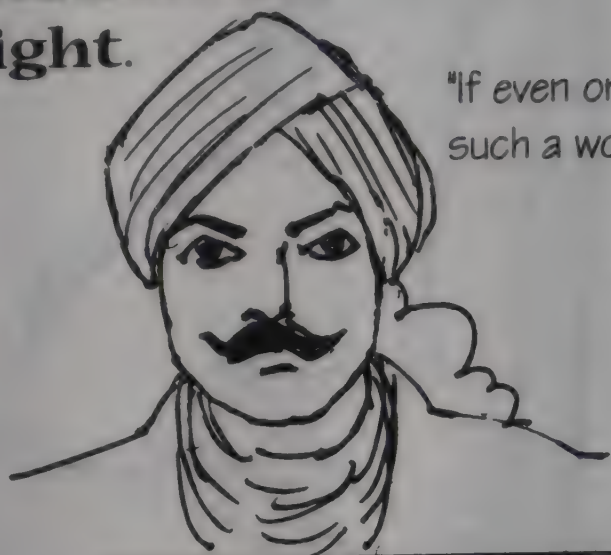 ight.
"If even or
such a wo